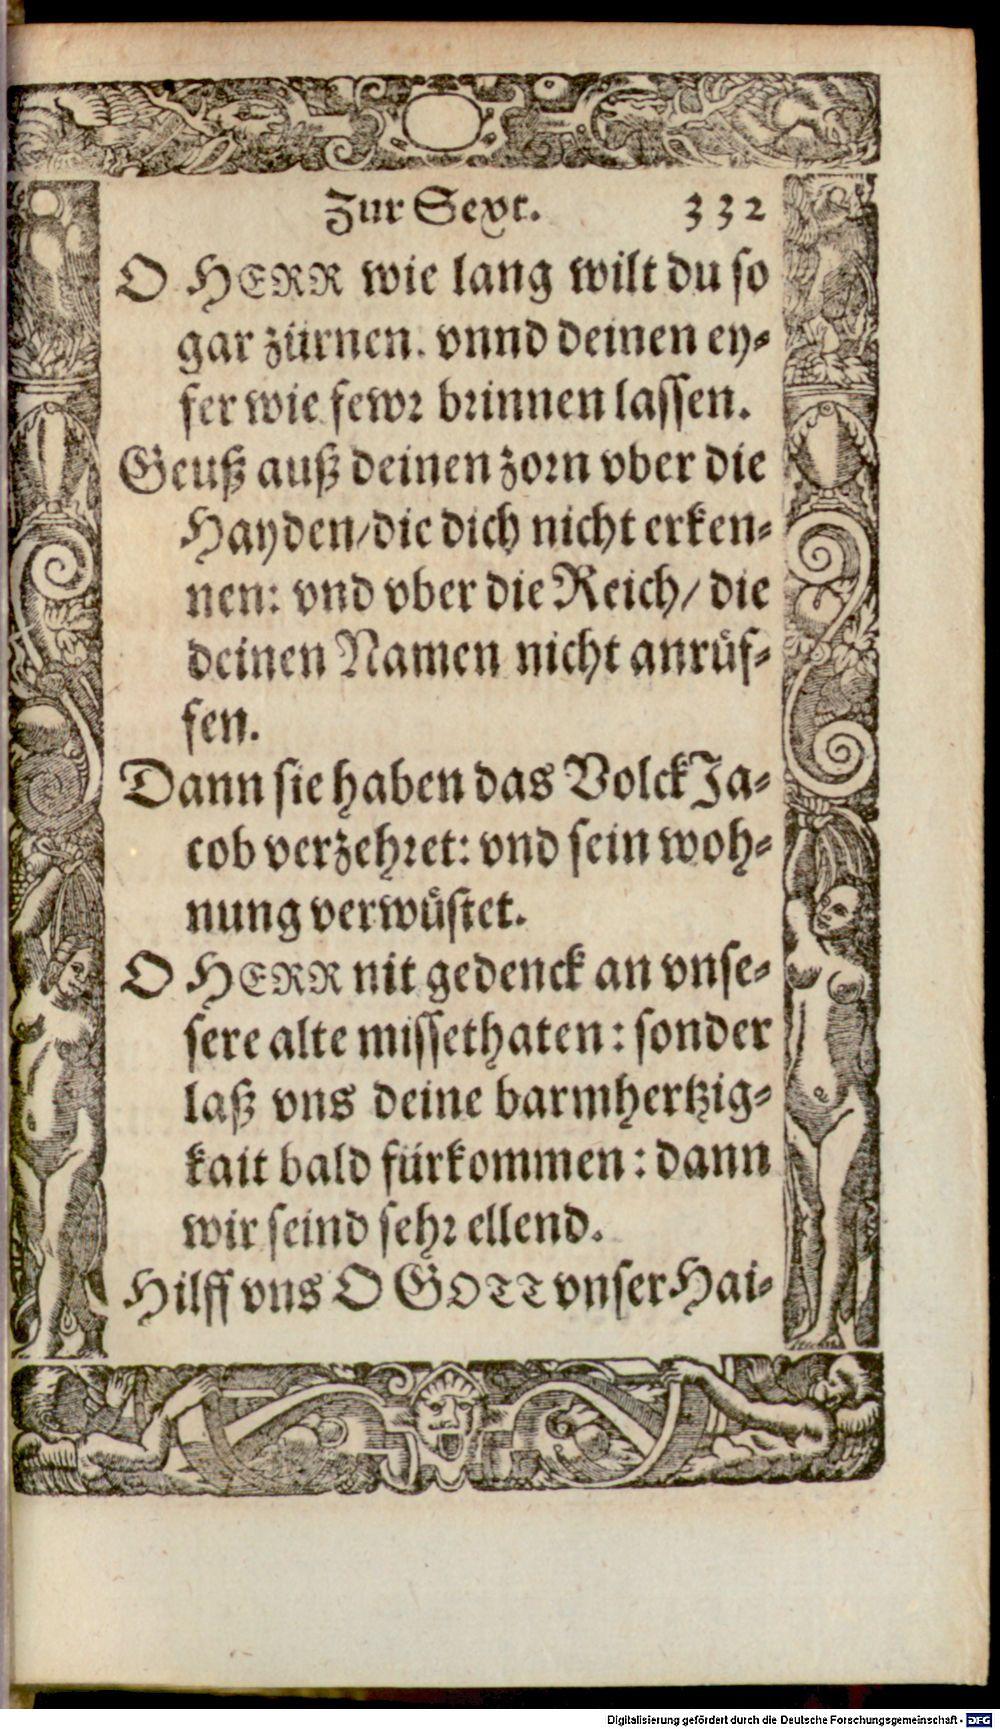 Zur Sext. 332
O HERR wie lang wilt du so
gar zürnen. vnnd deinen ey⸗
fer wie fewr brinnen lassen.
Geuß auß deinen zorn vber die
Hayden/die dich nicht erken⸗
nen: vnd vber die Reich/ die
deinen Namen nicht anrůf⸗
fen.
Dann sie haben das Volck Ja⸗
cob verzehret: vnd sein woh⸗
nung verwüstet.
O HERR nit gedenck an vnse⸗
sere alte missethaten: sonder
laß vns deine barmhertzig⸗
kait bald fürkommen: dann
wir seind sehr ellend.
Hilff vns O GOTT vnser Hai⸗
Digitalisierung gefördert durch die Deutsche Forschungsgemeinschaft - DFG